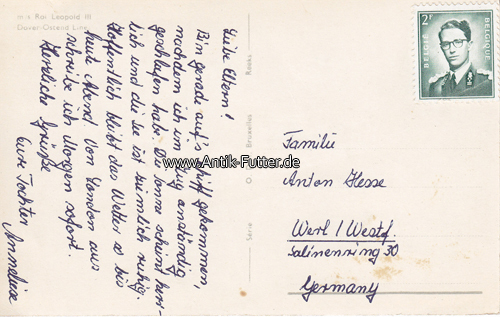 m s Roi Leopold III
Dover-Ostend Line
Liebe Eltern!
Bin gerade auf's Schiff gekommen,
nachdem ich im Zug anständig
geschlafen habe. Die Sonne scheint herr-
lich und die See ist ziemlich ruhig.
Hoffentlich bleibt das Wetter so bis
heute Abend. Von London aus
schreibe ich Morgen sofort.
Herzliche Grüße
Eure Tochter
Anneliese
Reeks
Bruxelles
Série
2F
BELGIË
BELGIQUE
Familie
Anton Hesse
Werl / Westf.
Salinenring 30
Germany
www.Antik-Futter.de